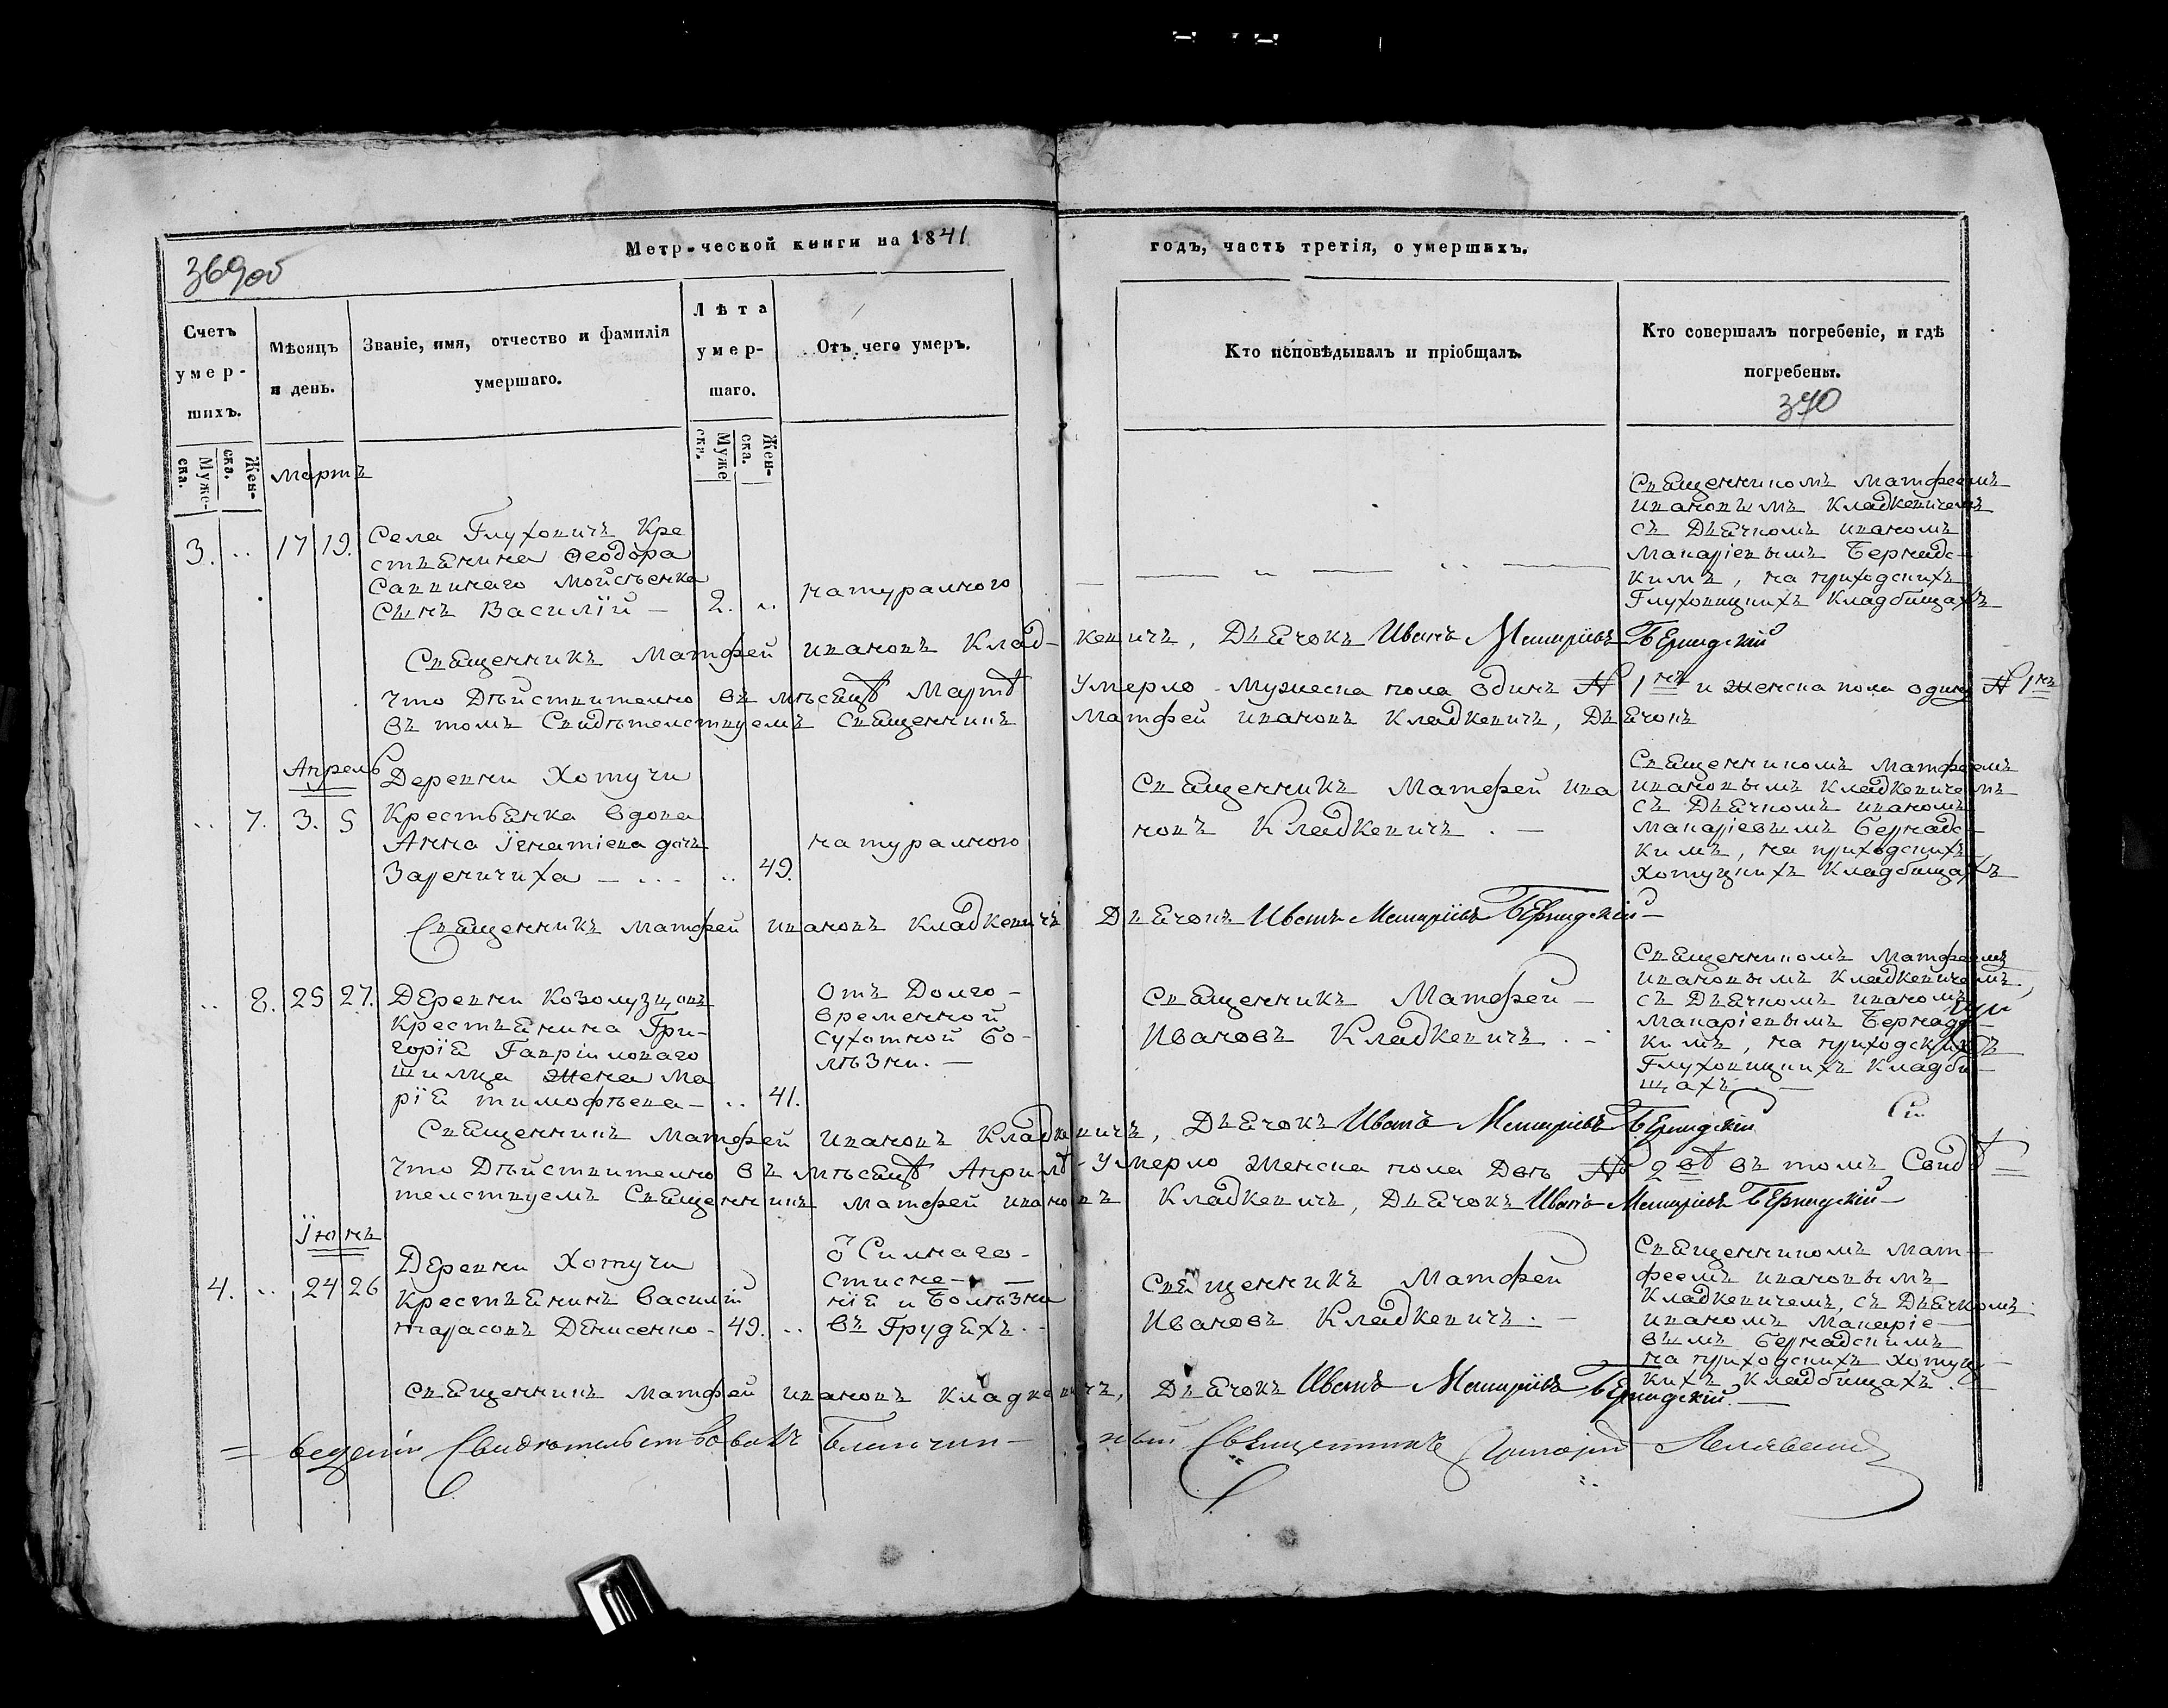 Метрической книги на 1841
годъ, часть третія, о умершихъ.
369об
Счетъ умер-шихъ.
Мѣсяцъ и день.
Званіе, имя, отчество и фамилія умершаго.
Лѣта умер-шаго.
Отъ чего умеръ.
Кто исповѣдывалъ и пріобщалъ.
Кто совершалъ погребеніе, и гдѣ погребены.
370
Муже-ска.
Жен-ска.
Муже ска.
Жен-ска.
Мартъ
3. .. 17 19.
Села Глуховичъ Кре
стьянина Феодора
Саввинаго Мойсѣенка
Сынъ Василій — 2. ..
натуралного
Священникомъ Матфеемъ
Ивановымъ Кладкевичемъ
съ Дьячкомъ Иваномъ
Макаріевымъ Бернадс-
кимъ, на приходскихъ
Глуховицкихъ Кладбищахъ
Священникъ Матфей Ивановъ Клад-кевичъ, Дьячокъ Иванъ Макаріевъ Бернадскій
что Дѣйствително въ мѣсяцѣ Мартѣ умерло мужеска пола одинъ № 1 и женска пола одинъ № 1
въ томъ Свидѣтелствуемъ Священникъ Матфей Ивановъ Кладкевичъ, Дьячокъ
Апрель
.. 7. 3. 5
Деревни Хотучи
Крестьянка вдова
Анна Игнатіева дочь
— .. 49.
натуралного
Священникъ Матфей Ива
новъ Кладкевичъ . —
Священникомъ Матфеемъ
Ивановымъ Кладкевичемъ
съ Дьячкомъ Иваномъ
Макаріевымъ Бернадс-
кимъ, на приходскихъ
Хотуцкихъ Кладбищахъ
Священникъ Матфей Ивановъ Кладкевичъ Дьячокъ Иванъ Макаріевъ Бернадскій —
.. 8. 25 27.
Деревни
Крестьянина Гри-
горія Гавріиловаго
Шилца жена Ма
рія Тимофѣева — .. 41.
Отъ Долго-
временной
Сухотной Бо-
лѣзни. —
Священникъ Матфей —
Ивановъ Кладкевичъ . —
Священникомъ Матфеемъ
Ивановымъ Кладкевичемъ,
съ Дьячкомъ Иваномъ
Макаріевымъ Бернадс-
кимъ, на приходскихъ
Глуховицкихъ Кладби-
щахъ —
Священникъ Матфей Ивановъ Кладкевичъ, Дьячокъ Иванъ Макаріевъ Бернадскій
что Дѣйствително въ мѣсяцѣ Априлѣ умерло женска пола Двѣ № 2 въ томъ Свидѣ=
телствуемъ Священникъ Матфей Ивановъ Кладкевичъ, Дьячокъ Иванъ Макаріевъ Бернадскій —
Іюнь
4. .. 24 26
Деревни Хотучи
Крестьянинъ Василій
Тарасовъ Денисенко - 49. ..
Силнаго-
стисне-
нія и Болѣзни
въ Грудяхъ. -
Священникъ Матфей
Ивановъ Кладкевичъ. —
Священникомъ Мат-
феемъ Ивановымъ
Кладкевичемъ, съ Дьячкомъ
Иваномъ Макаріе-
вымъ Бернадскимъ
на приходскихъ Хотуц-
кихъ Кладбищахъ.
Священникъ Матфей Ивановъ Кладкевичъ, Дьячокъ Иванъ Макаріевъ Бернадскій. —
Свидѣтельствовалъ Благочин-ный Священникъ Григорій